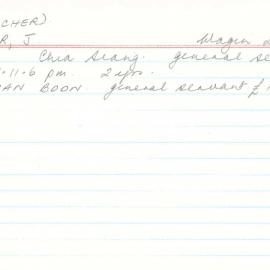 CHER).
R, J
Chia Seang. general se
.11.6 pm. 2 yrs.
AN BOON general servant £1